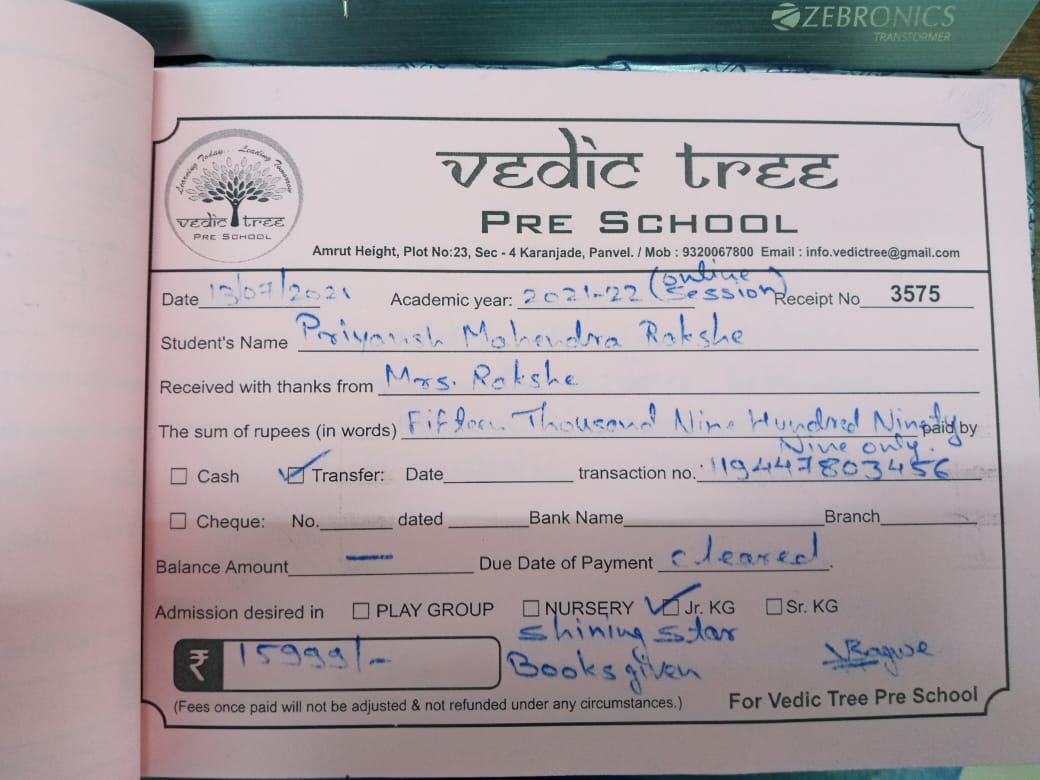 ZEBRONICS
TRANSFORMER
Learning Today... Leading Tomorrow
vedic tree
PRE SCHOOL
vedic tree
PRE SCHOOL
Amrut Height, Plot No:23, Sec - 4 Karanjade, Panvel. / Mob : 9320067800 Email : info.vedictree@gmail.com
Date 13/07/2021 Academic year: 2021-22 (online Session) Receipt No 3575
Student's Name Priyansh Mahendra Rakshe
Received with thanks from Mrs. Rakshe
The sum of rupees (in words) Fifteen Thousand Nine Hundred Ninety paid by
Nine only.
Cash Transfer: Date transaction no. 119447803456
Cheque: No. dated Bank Name Branch
Balance Amount — Due Date of Payment cleared.
Admission desired in PLAY GROUP NURSERY Jr. KG Sr. KG
Shining Star
₹ 15999/- Books given Bagwe
(Fees once paid will not be adjusted & not refunded under any circumstances.) For Vedic Tree Pre School